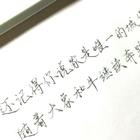 还记得你说家是唯一的城
随着大家和牛继续奔跑